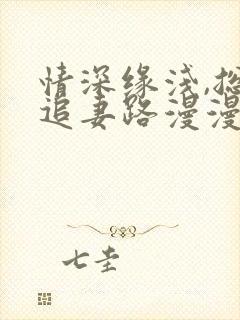 情深缘浅,总
追妻路漫漫
七圭